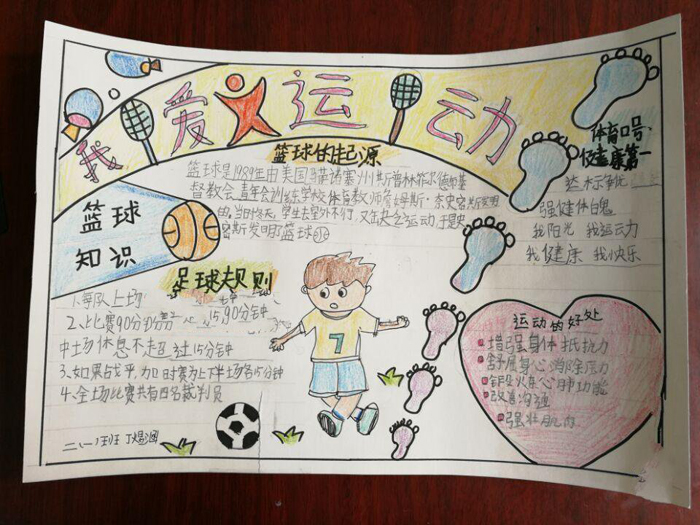 我爱运动
篮球的起源
篮球是1989年由美国马萨诸塞州斯普林菲尔德基
督教会青年会训练学校体育教师詹姆斯·奈史密斯发明
的。当时冬天,学生去室外不行,又缺乏运动,于是史
密斯发明篮球
体育口号
健康第一
达标争优
强健体魄
我阳光 我运动
我健康 我快乐
篮球
知识
足球规则
1、等队上场
2、比赛90分
15,90分钟
中场休息不超过15分钟
3、如果战平,加时赛为上下半场各15分钟
4、全场比赛共有四名裁判员
二、(1)班 丁
7
运动的好处
增强身体抵抗力
舒展身心 消除压力
锻炼心肺功能
改善沟通
强壮肌肉